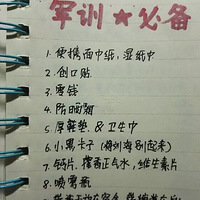 军训★必备
1. 便携面巾纸, 湿纸巾
2. 创口贴
3. 零钱
4. 防晒霜
5. 厚鞋垫, & 卫生巾
6. 小黑卡子(
7. 钙片, 藿香正气水, 维生素片
8. 喷雾瓶